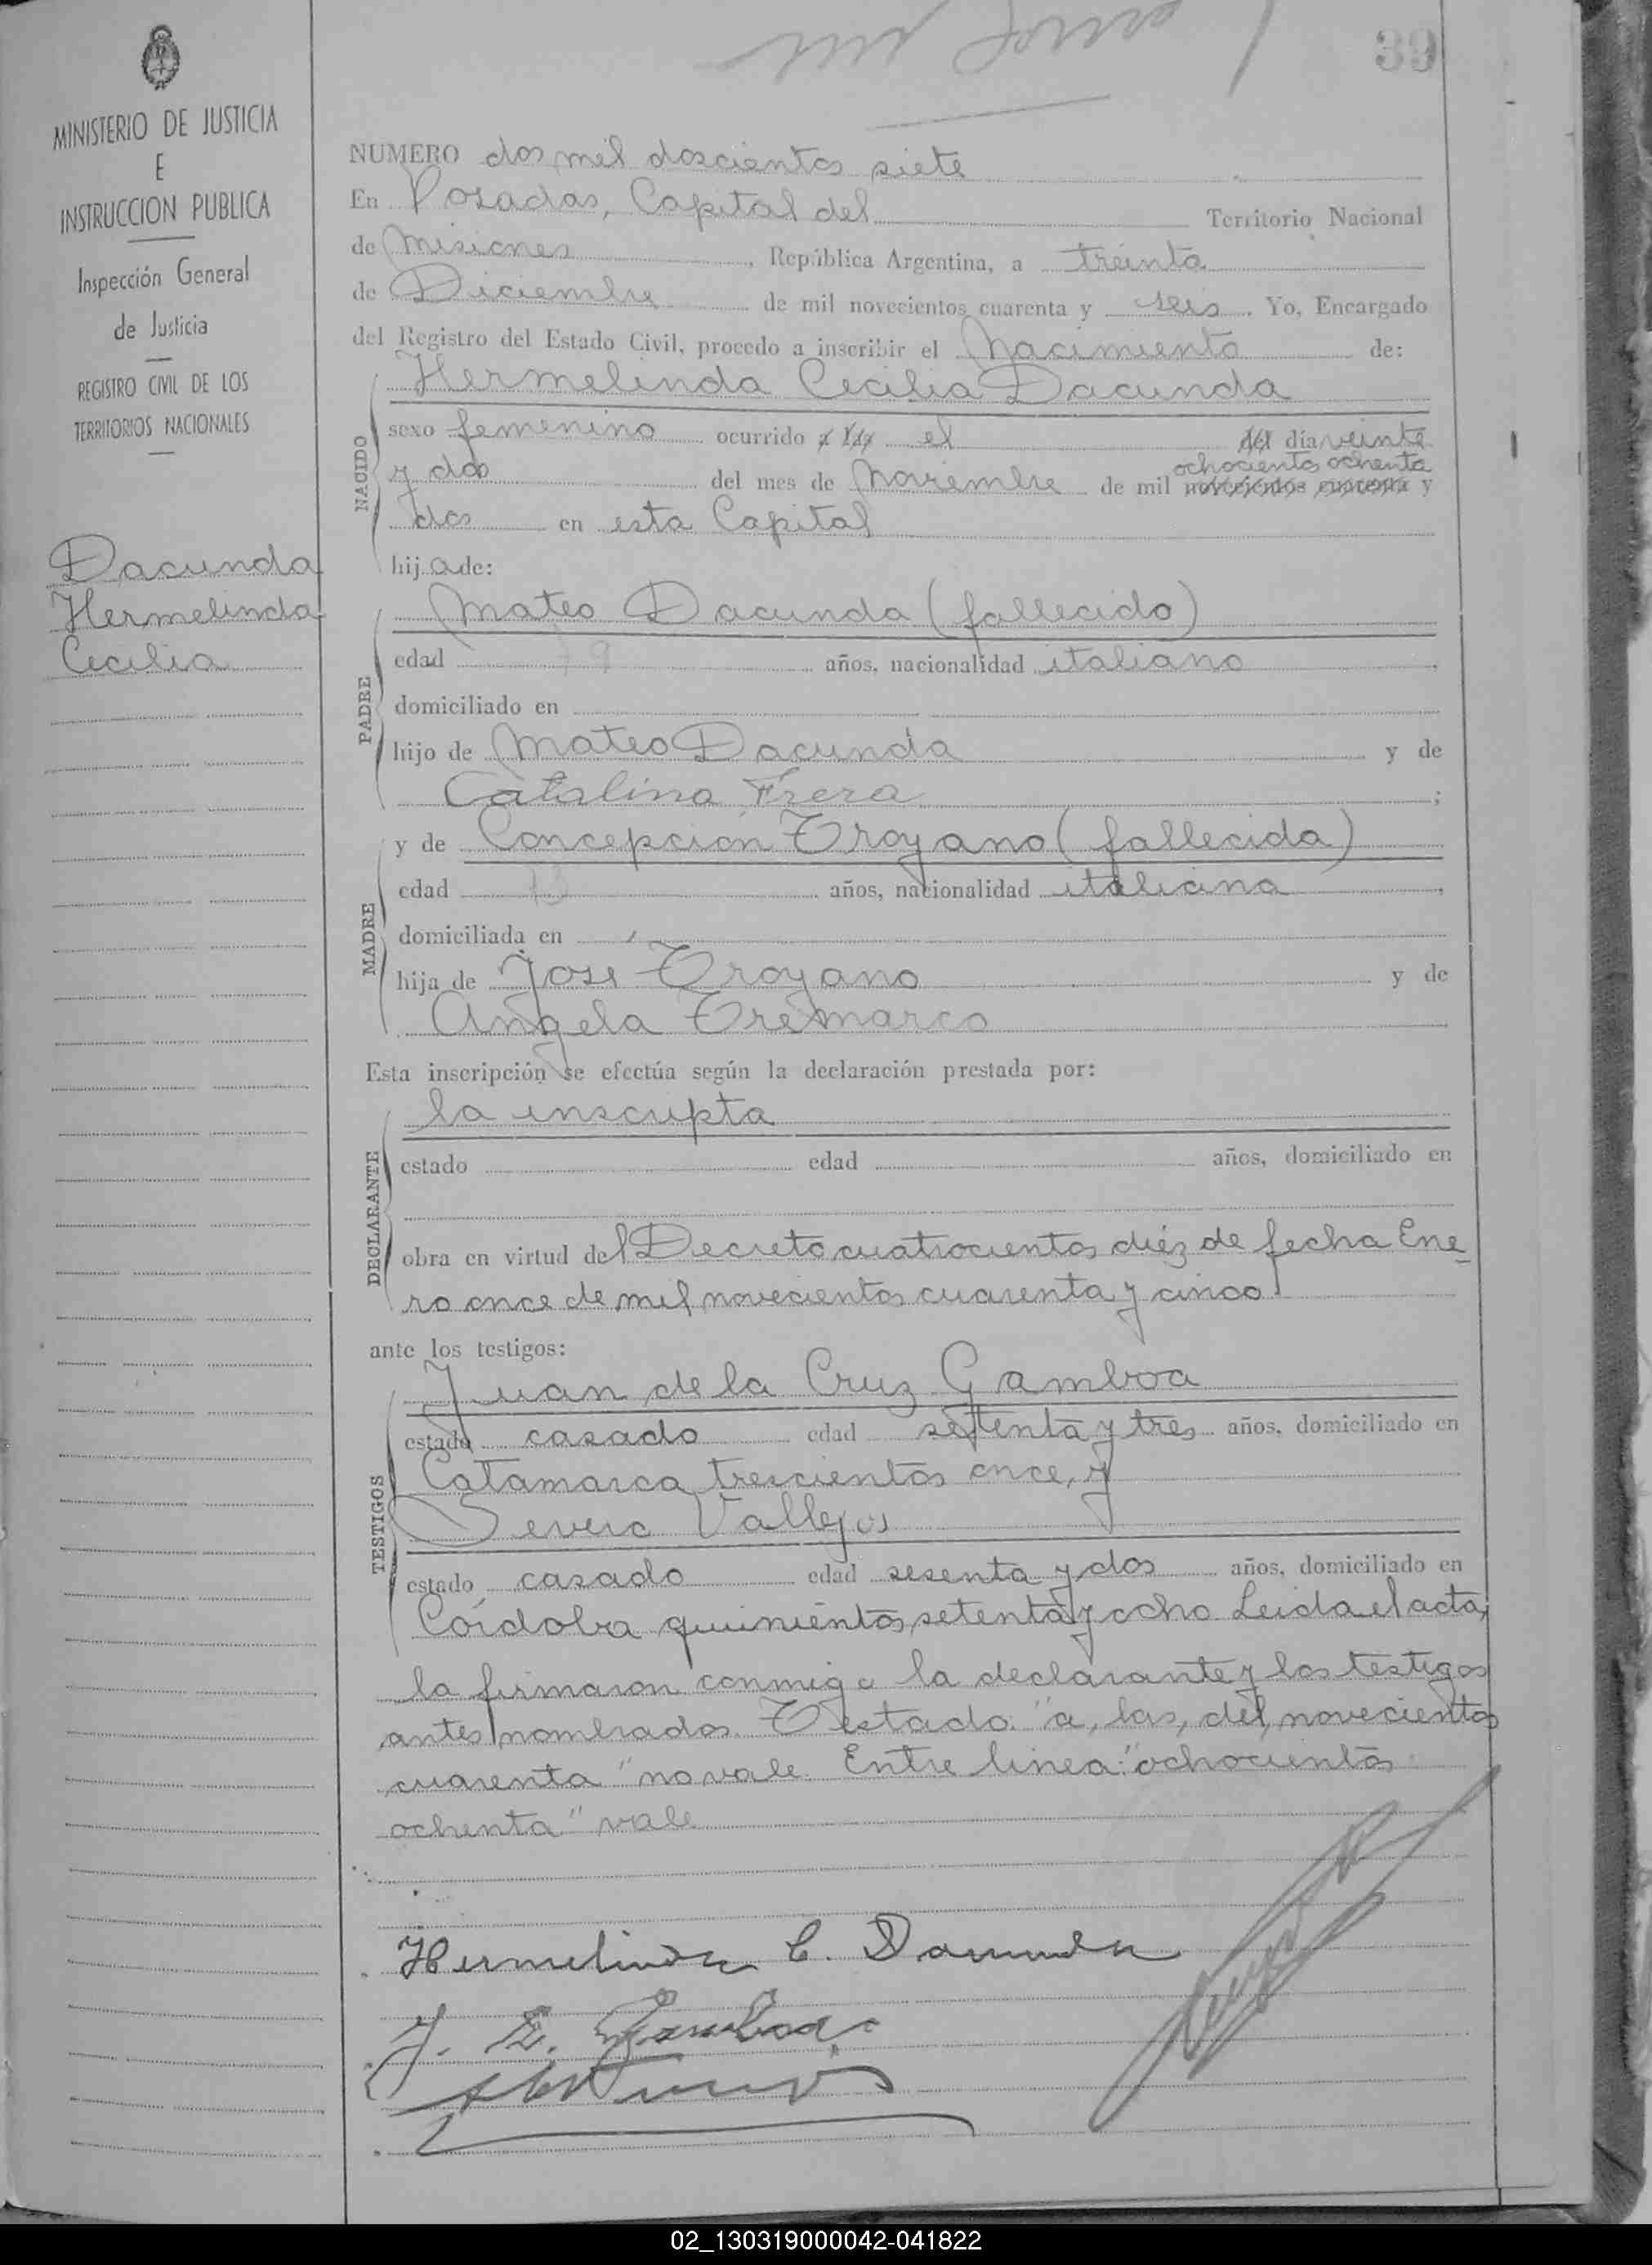 39
MINISTERIO DE JUSTICIA
E
INSTRUCCION PUBLICA
Inspección General
de Justicia
REGISTRO CIVIL DE LOS
TERRITORIOS NACIONALES
Dacunda
Hermelinda
Cecilia
NUMERO dos mil doscientos siete
En Posadas, Capital del Territorio Nacional
de Misiones, República Argentina, a treinta
de Diciembre de mil novecientos cuarenta y seis. Yo, Encargado
del Registro del Estado Civil, procedo a inscribir el Nacimiento de:
NACIDO
Hermelinda Cecilia Dacunda
sexo femenino ocurrido a las el del día veinte
ochocientos ochenta
y dos del mes de Noviembre de mil novecientos cuarenta y
dos en esta Capital
hija de:
PADRE
Mateo Dacunda (fallecido)
edad 79 años, nacionalidad italiano,
domiciliado en
hijo de Mateo Dacunda y de
Catalina Frera;
MADRE
y de Concepción Troyano (fallecida)
edad 73 años, nacionalidad italiana,
domiciliada en
hija de José Troyano y de
Angela Tremarco
Esta inscripción se efectúa según la declaración prestada por:
DECLARANTE
la inscripta
estado edad años, domiciliado en
obra en virtud del Decreto cuatrocientos diéz de fecha Ene
ro once de mil novecientos cuarenta y cinco
ante los testigos:
TESTIGOS
Juan de la Cruz Gamboa
estado casado edad setenta y tres años, domiciliado en
Catamarca trescientos once, y
Severo Vallejos
estado casado edad sesenta y dos años, domiciliado en
Córdoba quinientos setenta y ocho Leida el acta,
la firmaron conmigo la declarante y los testigos
antes nombrados. Testado: "a, las, del, novecientos
cuarenta" no vale. Entre linea: "ochocientos
ochenta" vale
Hermelinda C. Dacunda
J. C. Gamboa
02_130319000042-041822